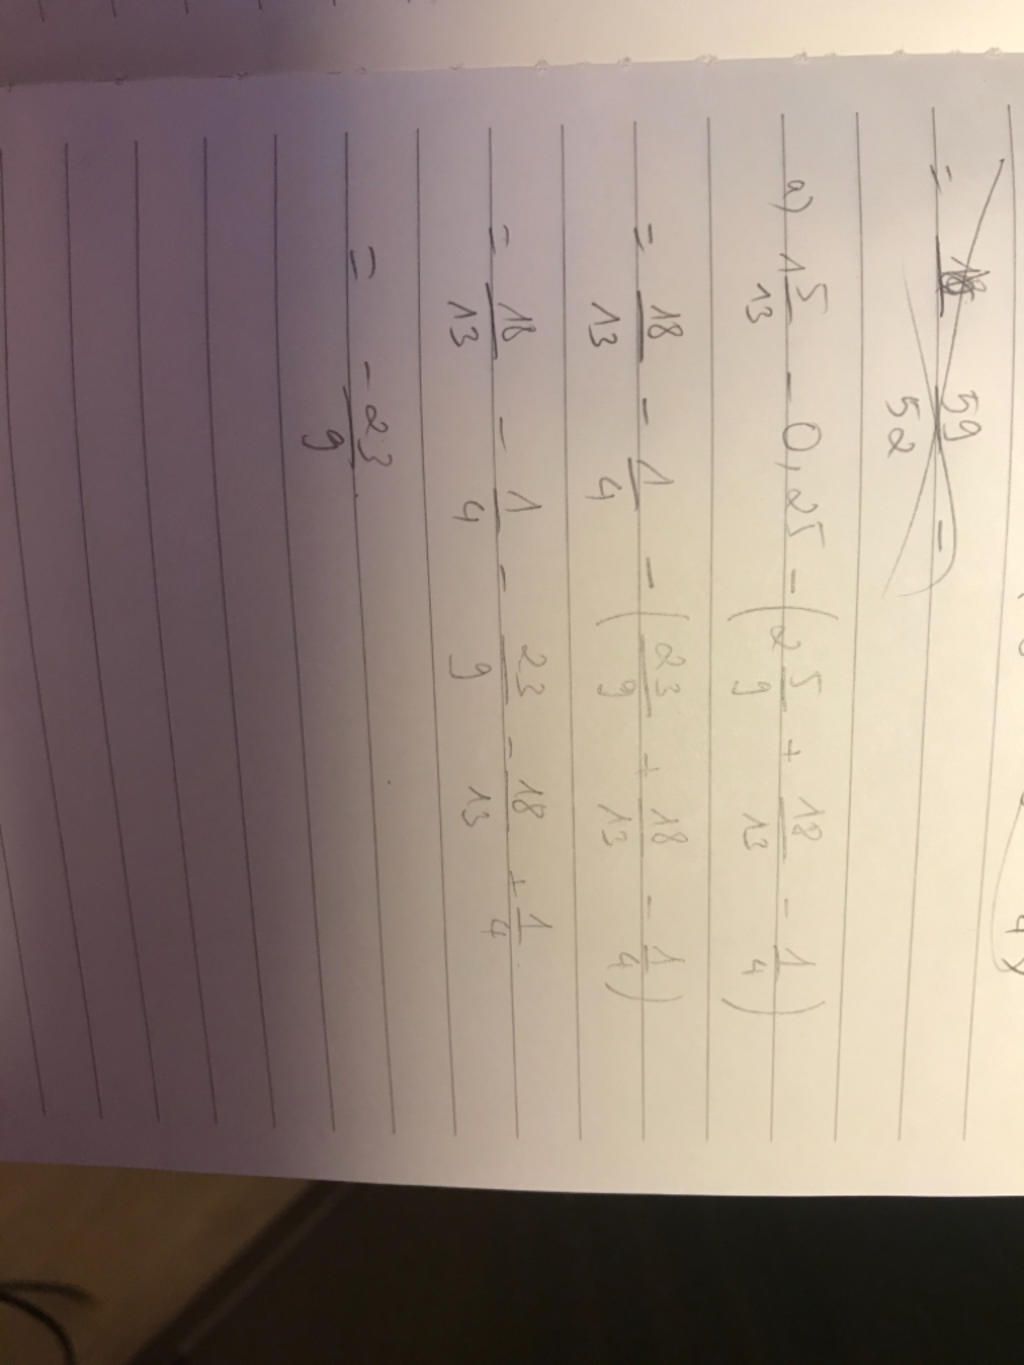 = 59/52 -
a) 1 5/13 - 0,25 - (2 5/9 + 18/13 - 1/4)
= 18/13 - 1/4 - (23/9 + 18/13 - 1/4)
= 18/13 - 1/4 - 23/9 - 18/13 + 1/4
= -23/9